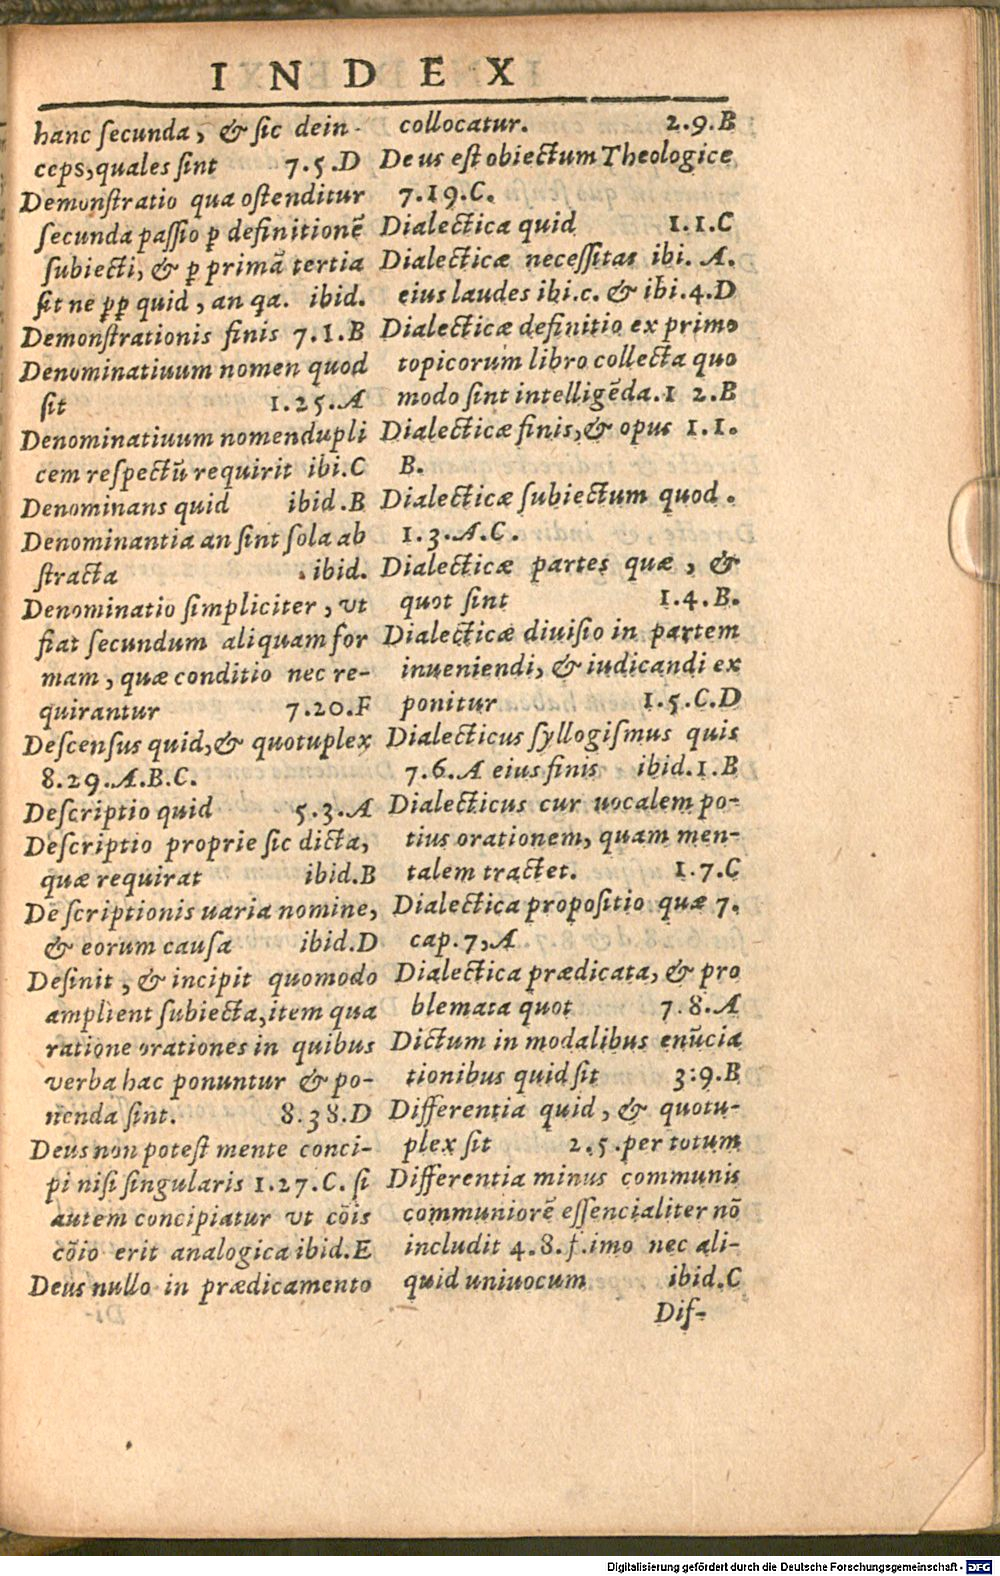 INDEX
hanc ſecunda, & ſic dein-
ceps, quales ſint 7.5.D
Demonſtratio qua oſtenditur
ſecunda paſſio ꝑ definitionẽ
ſubiecti, & ꝑ primã tertia
ſit ne ꝓꝑ quid, an qa. ibid.
Demonſtrationis finis 7.1.B
Denominatiuum nomen quod
ſit 1.25.A
Denominatiuum nomen dupli
cem reſpectũ requirit ibi.C
Denominans quid ibid.B
Denominantia an ſint ſola ab
ſtracta .ibid.
Denominatio ſimpliciter, vt
fiat ſecundum aliquam for
mam, quæ conditio nec re-
quirantur 7.20.F
Deſcenſus quid, & quotuplex
8.29.A.B.C.
Deſcriptio quid 5.3.A
Deſcriptio proprie ſic dicta,
quæ requirat ibid.B
De ſcriptionis uaria nomine,
& eorum cauſa ibid.D
Deſinit, & incipit quomodo
amplient ſubiecta, item qua
ratione orationes in quibus
verba hac ponuntur & po-
nenda ſint. 8.38.D
Deus non poteſt mente conci-
pi niſi ſingularis 1.27.C. ſi
autem concipiatur vt cõis
cõio erit analogica ibid.E
Deus nullo in prædicamento
collocatur. 2.9.B
Deus eſt obiectum Theologice
7.19.C.
Dialectica quid 1.1.C
Dialecticæ neceſſitas ibi. A.
eius laudes ibi.c. & ibi.4.D
Dialecticæ definitio ex primo
topicorum libro collecta quo
modo ſint intelligẽda. 1 2.B
Dialecticæ finis, & opus 1.1.
B.
Dialecticæ ſubiectum quod.
1.3.A.C.
Dialecticæ partes quæ, &
quot ſint 1.4.B.
Dialecticæ diuiſio in partem
inueniendi, & iudicandi ex
ponitur 1.5.C.D
Dialecticus ſyllogiſmus quis
7.6.A eius finis ibid.1.B
Dialecticus cur uocalem po-
tius orationem, quam men-
talem tractet. 1.7.C
Dialectica propoſitio quæ 7.
cap.7,A
Dialectica prædicata, & pro
blemata quot 7.8.A
Dictum in modalibus enũcia
tionibus quid ſit 3:9.B
Differentia quid, & quotu-
plex ſit 2.5.per totum
Differentia minus communis
communiorẽ eſſencialiter nõ
includit 4.8.ſ.imo nec ali-
quid uniuocum ibid.C
Dif-
Digitalisierung gefördert durch die Deutsche Forschungsgemeinschaft - DFG